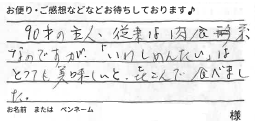 お便り・ご感想などなどお待ちしております♪
90才の主人、従来は肉食系
なのですが、「いわしめんたい」は
とっても美味しいと、喜こんで食べまし
た。
お名前 または ペンネーム
様